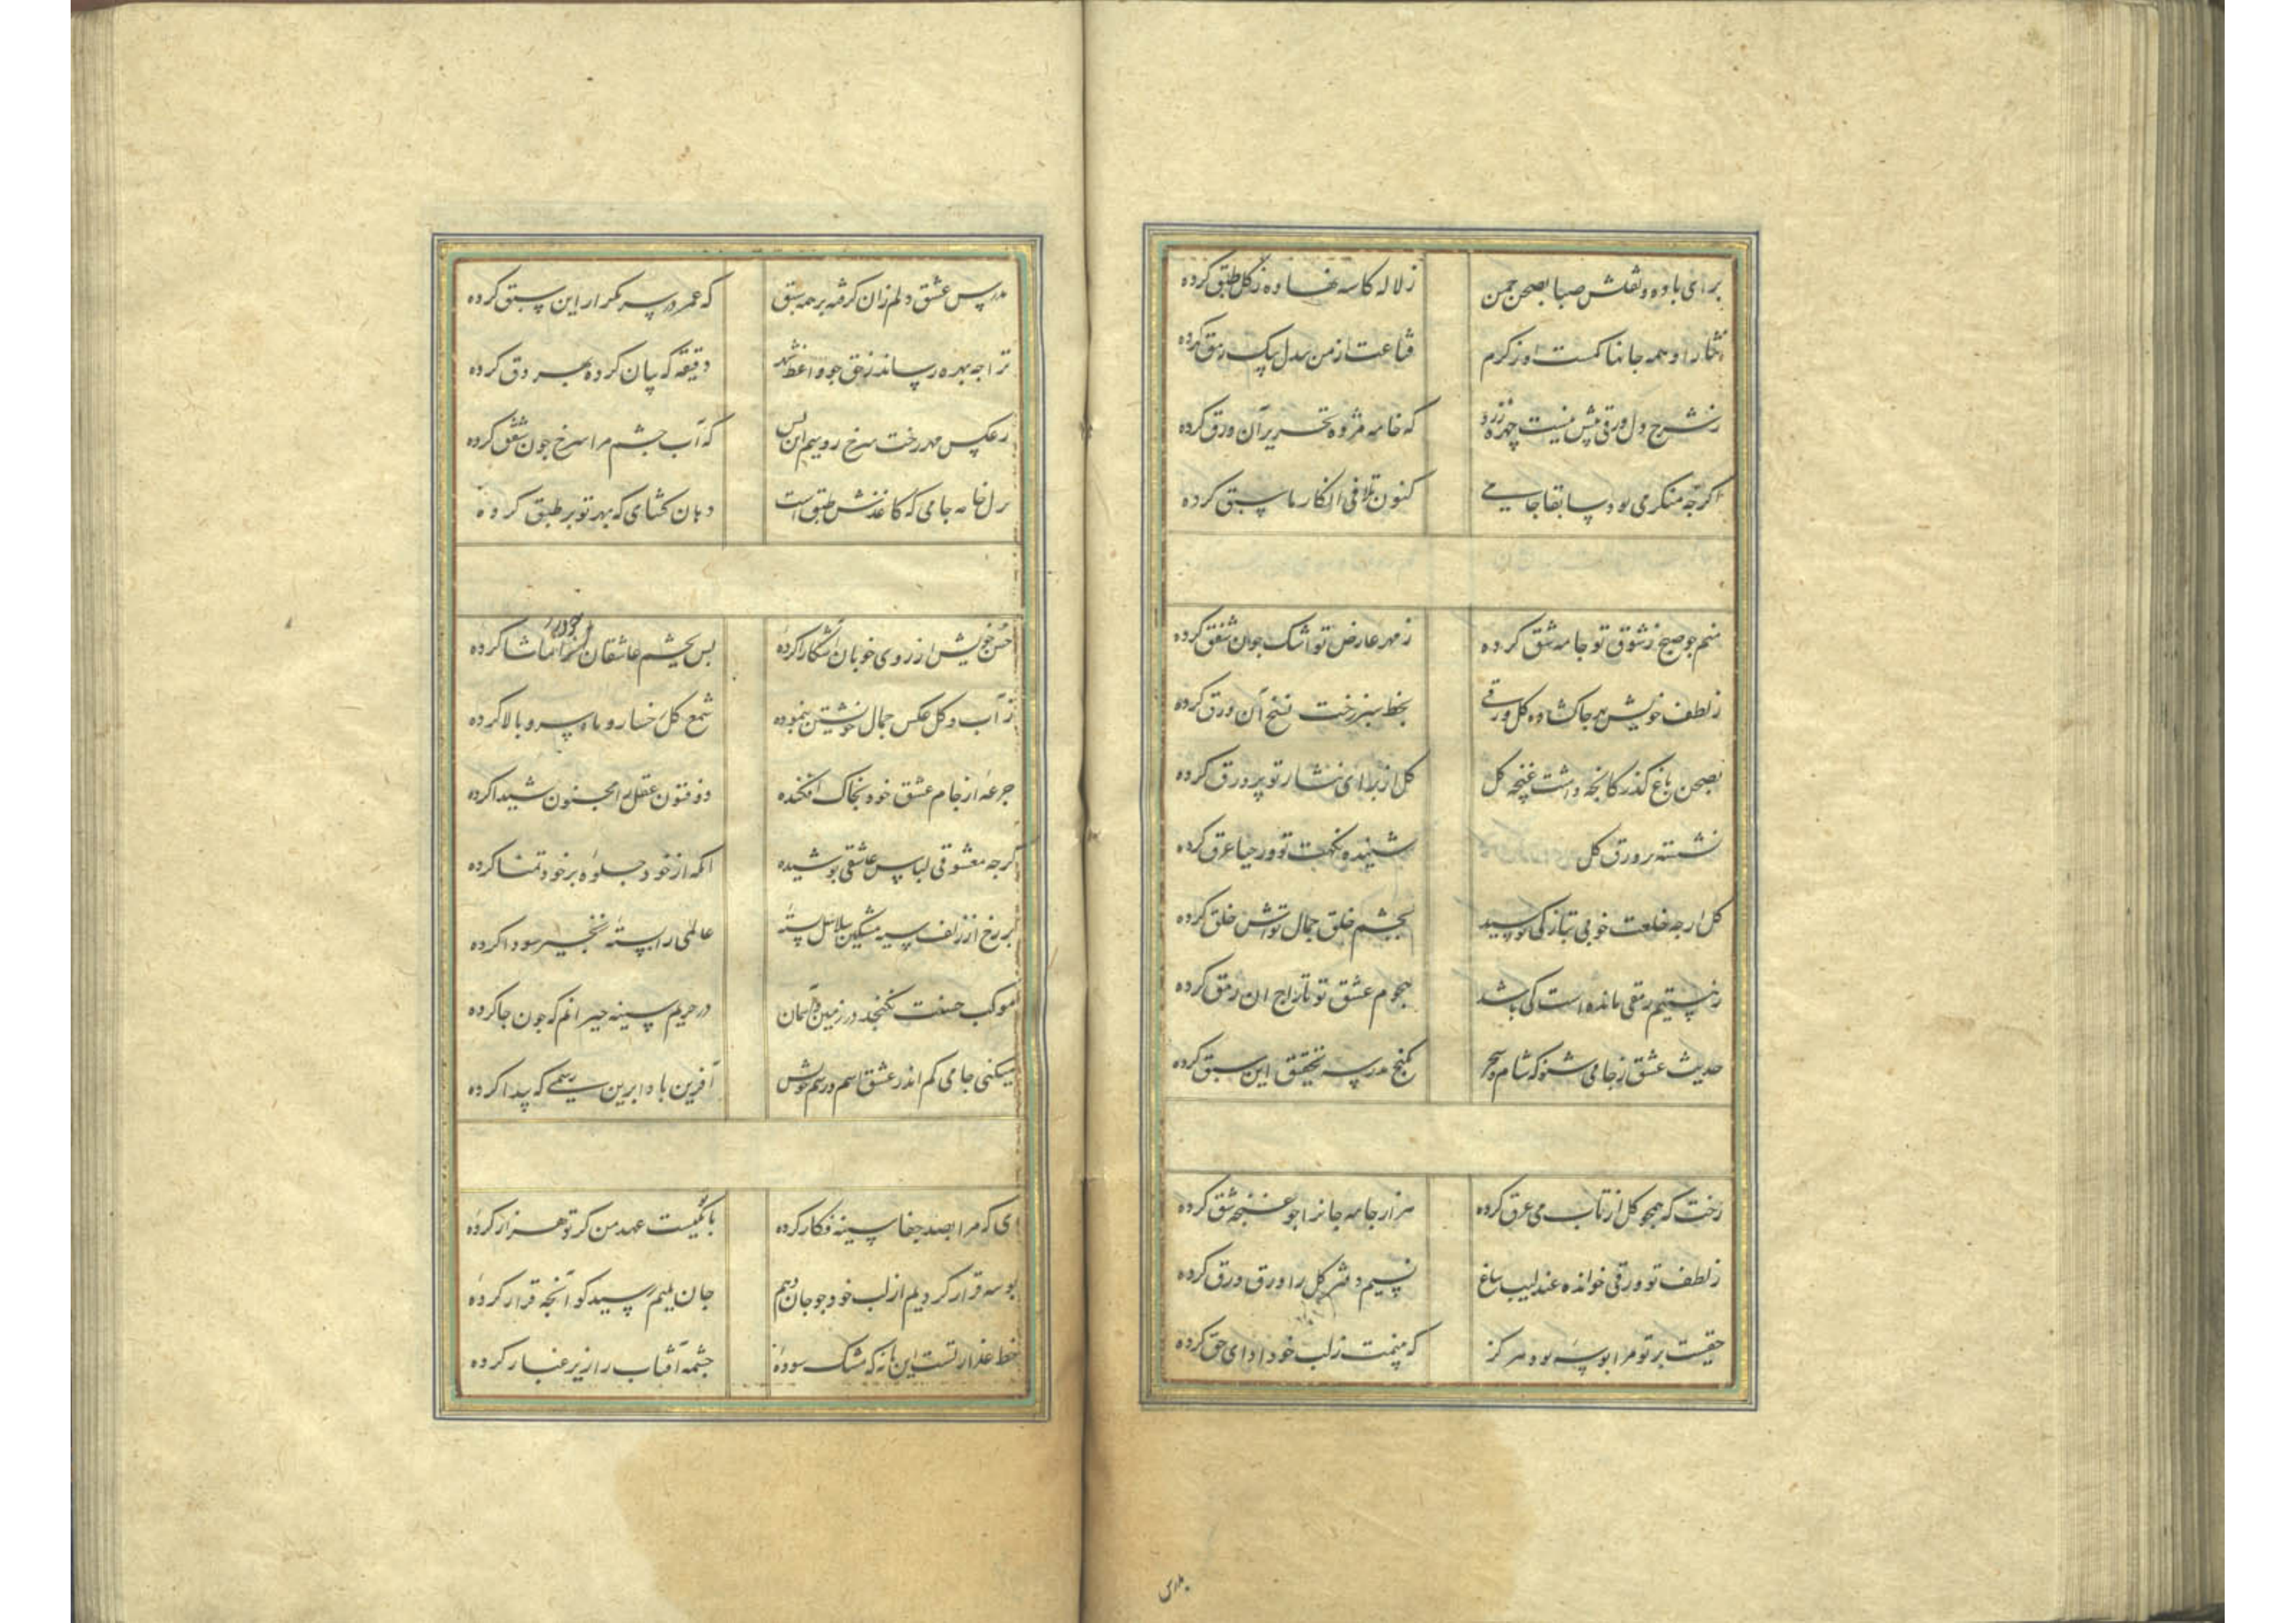 برای باده و نقلش صبا بصحن چمن زلاله کاسه نهاده زگل طبق کرده
نثار او همه جانها کمست اوز کرم قناعت از من بیدل بیک رمق کرده
زشرح دل ورقی پیش نیست چهره زرد که خامه مژه تحریر آن ورق کرده
اگرچه منکری بود سابقا جامی کنون تلافی انکار ما سبق کرده
منم جو صبح زشوق تو جامه شق کرده زمهر عارض تو اشک جون شفق کرده
زلطف خویش بهر جا کشاده گل ورقی بخط سبز رخت نسخ آن ورق کرده
بصحن باغ گذر کانجه داشت غنچه گل گل از برای نثار تو بر ورق کرده
نشسته بر ورق گل شنیده نکهت تو وز حیا عرق کرده
گل ارجه خلعت خوبی بتازکی بوشید بجشم خلق جمال تواش خلق کرده
زهستیم رمقی مانده است کی باشد هجوم عشق تو تاراج ان رمق کرده
حدیث عشق زجامی شنو که شام و سحر بکنج مدرسه تحقیق این سبق کرده
رخت که همجو گل از تاب می عرق کرده هزار جامه جانرا جو غنچه شق کرده
زلطف تو ورقی خوانده عندلیب بباغ نسیم دفتر گل را ورق ورق کرده
حقیست بر تو مرا بوسه بود هرگز که بینمت زلب خود ادای حق کرده
بدرس عشق دلم زان گرفته بر همه سبق که عمر در سر تکرار این سبق کرده
ترا جه بهره رساند زحق جو واعظ شهر دقیقه که بیان کرده بهر دق کرده
زعکس مهر رخت سرخ روییم این بس که آب جشم مرا سرخ جون شفق کرده
خامه جامی که کاغذش طبق است دهان کشای که بهر تو بر طبق کرده
حسن خویش از روی خوبان آشکارا کرده بس بجشم عاشقان خود را تماشا کرده
زآب و گل عکس جمال خویشتن بنموده شمع گل رخسار و ماه سرو بالا کرده
جرعه از جام عشق خود بخاک افکنده ذوفنون عقل را مجنون و شیدا کرده
گرجه معشوقی لباس عاشقی بوشیده انگه از خود جلوه بر خود تمنا کرده
بر رخ از زلف سیه مشکین سلاسل بسته عالمی را بسته زنجیر سودا کرده
موکب حسنت نگنجد در زمین و آسمان در حریم سینه حیرانم که جون جا کرده
میکنی جامی کم اندر عشق اسم و رسم خویش آفرین بادا برین رسمی که پیدا کرده
ای که مرا بصد جفا سینه فکار کرده با تو یکیست عهد من گر تو هزار کرده
بوسه قرار کردیم از لب خود جو جان دهم جان بلبم رسید کو آنچه قرار کرده
خط عذار تست این یا نه که مشک سوده جشمه آفتاب را زیر غبار کرده
بدرس